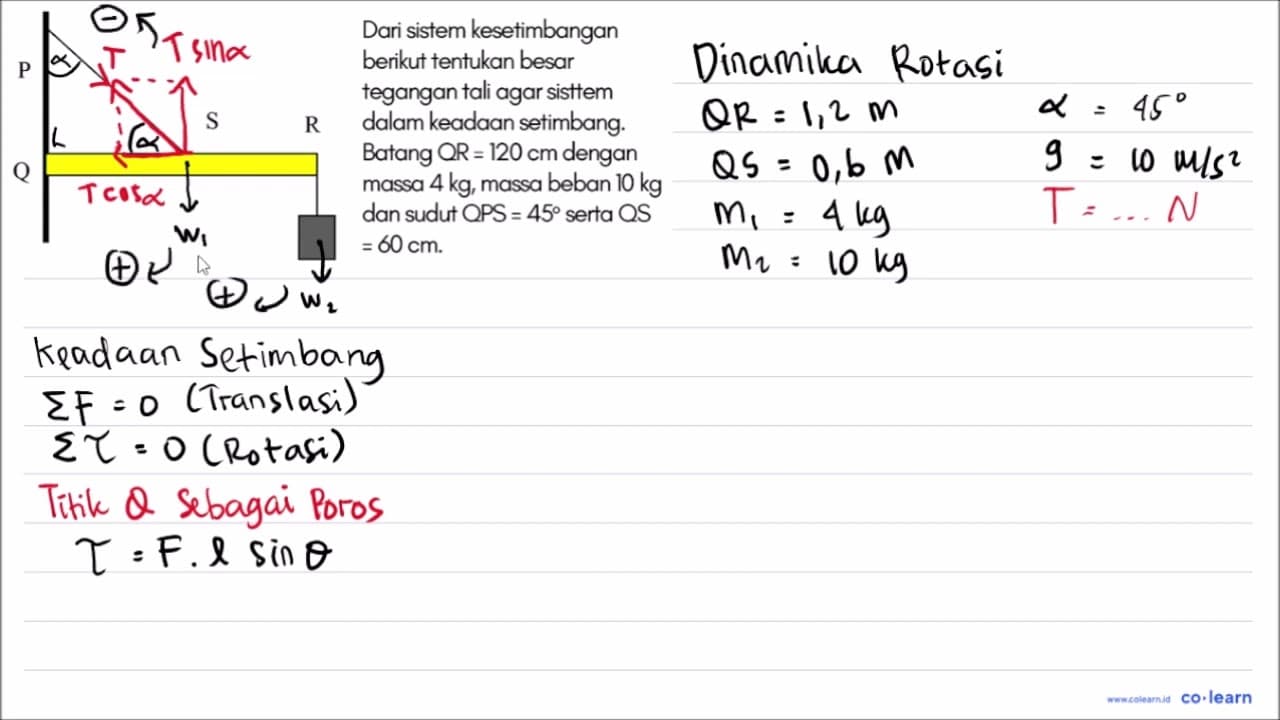 Dari sistem kesetimbangan
berikut tentukan besar
tegangan tali agar sisttem
dalam keadaan setimbang.
Batang QR = 120 cm dengan
massa 4 kg, massa beban 10 kg
dan sudut QPS = 45° serta QS
= 60 cm.
P
Q
S
R
α
T
T sinα
α
T cosα
W₁
W₂
⊖
⊕
⊕
Dinamika Rotasi
QR = 1,2 m
QS = 0,6 m
m₁ = 4 kg
m₂ = 10 kg
α = 45°
g = 10 m/s²
T = ... N
Keadaan Setimbang
ΣF = 0 (Translasi)
Στ = 0 (Rotasi)
Titik Q Sebagai Poros
τ = F . l sin θ
www.colearn.id co·learn